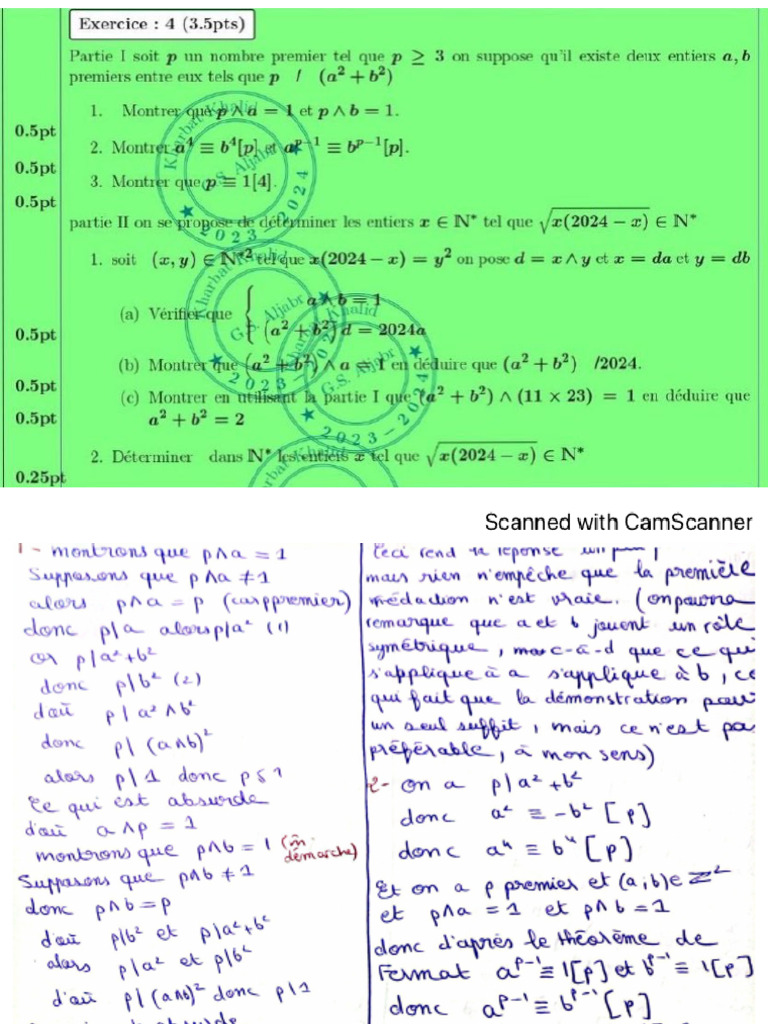 Exercice : 4 (3.5pts)
Partie I soit p un nombre premier tel que p ≥ 3 on suppose qu'il existe deux entiers a, b
premiers entre eux tels que p / (a² + b²)
1. Montrer que p ∧ a = 1 et p ∧ b = 1.
0.5pt
2. Montrer a⁴ ≡ b⁴[p] et aᵖ⁻¹ ≡ bᵖ⁻¹[p].
0.5pt
3. Montrer que p ≡ 1[4].
0.5pt
partie II on se propose de déterminer les entiers x ∈ ℕ* tel que √x(2024 − x) ∈ ℕ*
1. soit (x, y) ∈ ℕ*² tel que x(2024 − x) = y² on pose d = x ∧ y et x = da et y = db
(a) Vérifier que { a ∧ b = 1
(a² + b²) d = 2024a
0.5pt
(b) Montrer que (a² + b²) ∧ a = 1 en déduire que (a² + b²) /2024.
0.5pt
(c) Montrer en utilisant la partie I que (a² + b²) ∧ (11 × 23) = 1 en déduire que
0.5pt
a² + b² = 2
2. Déterminer dans ℕ* les entiers x tel que √x(2024 − x) ∈ ℕ*
0.25pt
Kharbat Khalid
G.S. Aljabr
2023-2024
Kharbat Khalid
G.S. Aljabr
2023-2024
Khalid
G.S. Aljabr
2023-2024
Kharbat Khalid
Scanned with CamScanner
1 - montrons que p∧a = 1
Supposons que p∧a ≠ 1
alors p∧a = p (car p premier)
donc p|a alors p|a² (1)
or p|a²+b²
donc p|b² (2)
d'où p | a²∧b²
donc p| (a∧b)²
alors p|1 donc p≤1
Ce qui est absurde
d'où a∧p = 1
montrons que p∧b = 1 (m̂ démarche)
Supposons que p∧b ≠ 1
donc p∧b = p
d'où p|b² et p|a²+b²
alors p|a² et p|b²
d'où p| (a∧b)² donc p|1
absurde
Ceci rend la réponse un
mais rien n'empêche que la première
rédaction n'est vraie. (on pourra
remarque que a et b jouent un rôle
symétrique, mas c-à-d que ce qui
s'applique à a s'applique à b, ce
qui fait que la démonstration pour
un seul suffit, mais ce n'est pas
préférable, à mon sens)
2- on a p|a²+b²
donc a² ≡ -b² [p]
donc a⁴ ≡ b⁴ [p]
Et on a p premier et (a;b)∈ ℤ²
et p∧a = 1 et p∧b = 1
donc d'après le théorème de
Fermat aᵖ⁻¹ ≡ 1[p] et bᵖ⁻¹ ≡ 1[p]
donc aᵖ⁻¹ ≡ bᵖ⁻¹ [p]